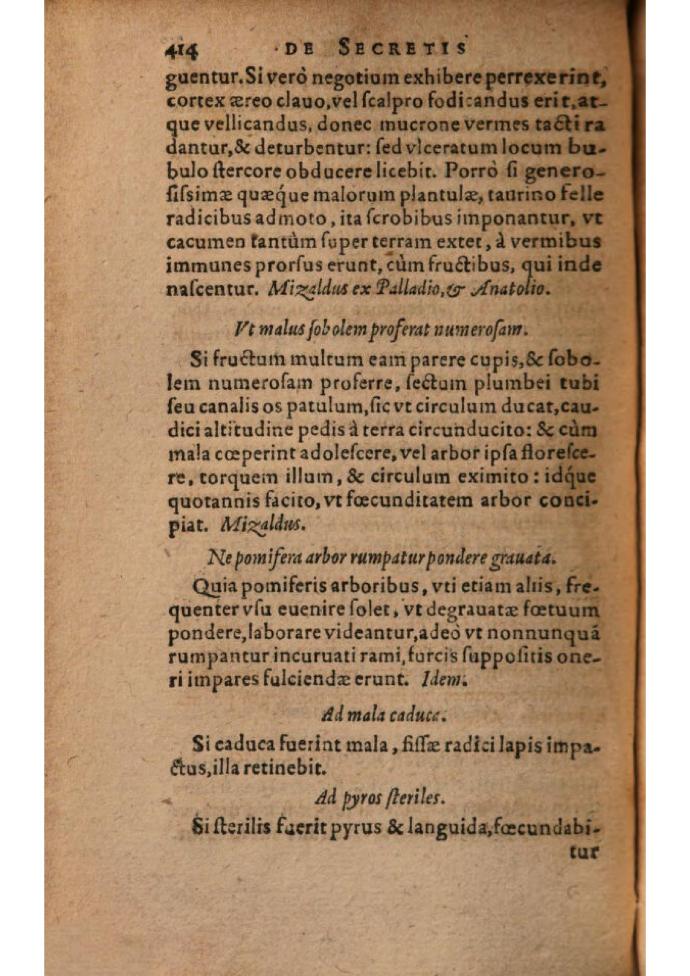 414 DE SECRETIS
guentur. Si verò negotium exhibere perrexerint,
cortex æreo clauo, vel ſcalpro fodicandus erit, at-
que vellicandus, donec mucrone vermes tacti ra
dantur, & deturbentur: ſed vlceratum locum bu-
bulo ſtercore obducere licebit. Porrò ſi genero-
ſiſsimæ quæq́ue malorum plantulæ, taurino felle
radicibus admoto, ita ſcrobibus imponantur, vt
cacumen tantùm ſuper terram extet, à vermibus
immunes prorſus erunt, cùm fructibus, qui inde
naſcentur. Mizaldus ex Palladio, & Anatolio.
Vt malus ſobolem proferat numeroſam.
Si fructum multum eam parere cupis, & ſobo-
lem numeroſam proferre, ſectum plumbei tubi
ſeu canalis os patulum, ſic vt circulum ducat, cau-
dici altitudine pedis à terra circunducito: & cùm
mala cœperint adoleſcere, vel arbor ipſa floreſce-
re, torquem illum, & circulum eximito: idq́ue
quotannis facito, vt fœcunditatem arbor conci-
piat. Mizaldus.
Ne pomifera arbor rumpatur pondere grauata.
Quia pomiferis arboribus, vti etiam aliis, fre-
quenter vſu euenire ſolet, vt degrauatæ fœtuum
pondere, laborare videantur, adeò vt nonnunquã
rumpantur incuruati rami, furcis ſuppoſitis one-
ri impares fulciendæ erunt. Idem.
Ad mala caduca.
Si caduca fuerint mala, fiſſæ radici lapis impa-
ctus, illa retinebit.
Ad pyros ſteriles.
Si ſterilis fuerit pyrus & languida, fœcundabi-
tur